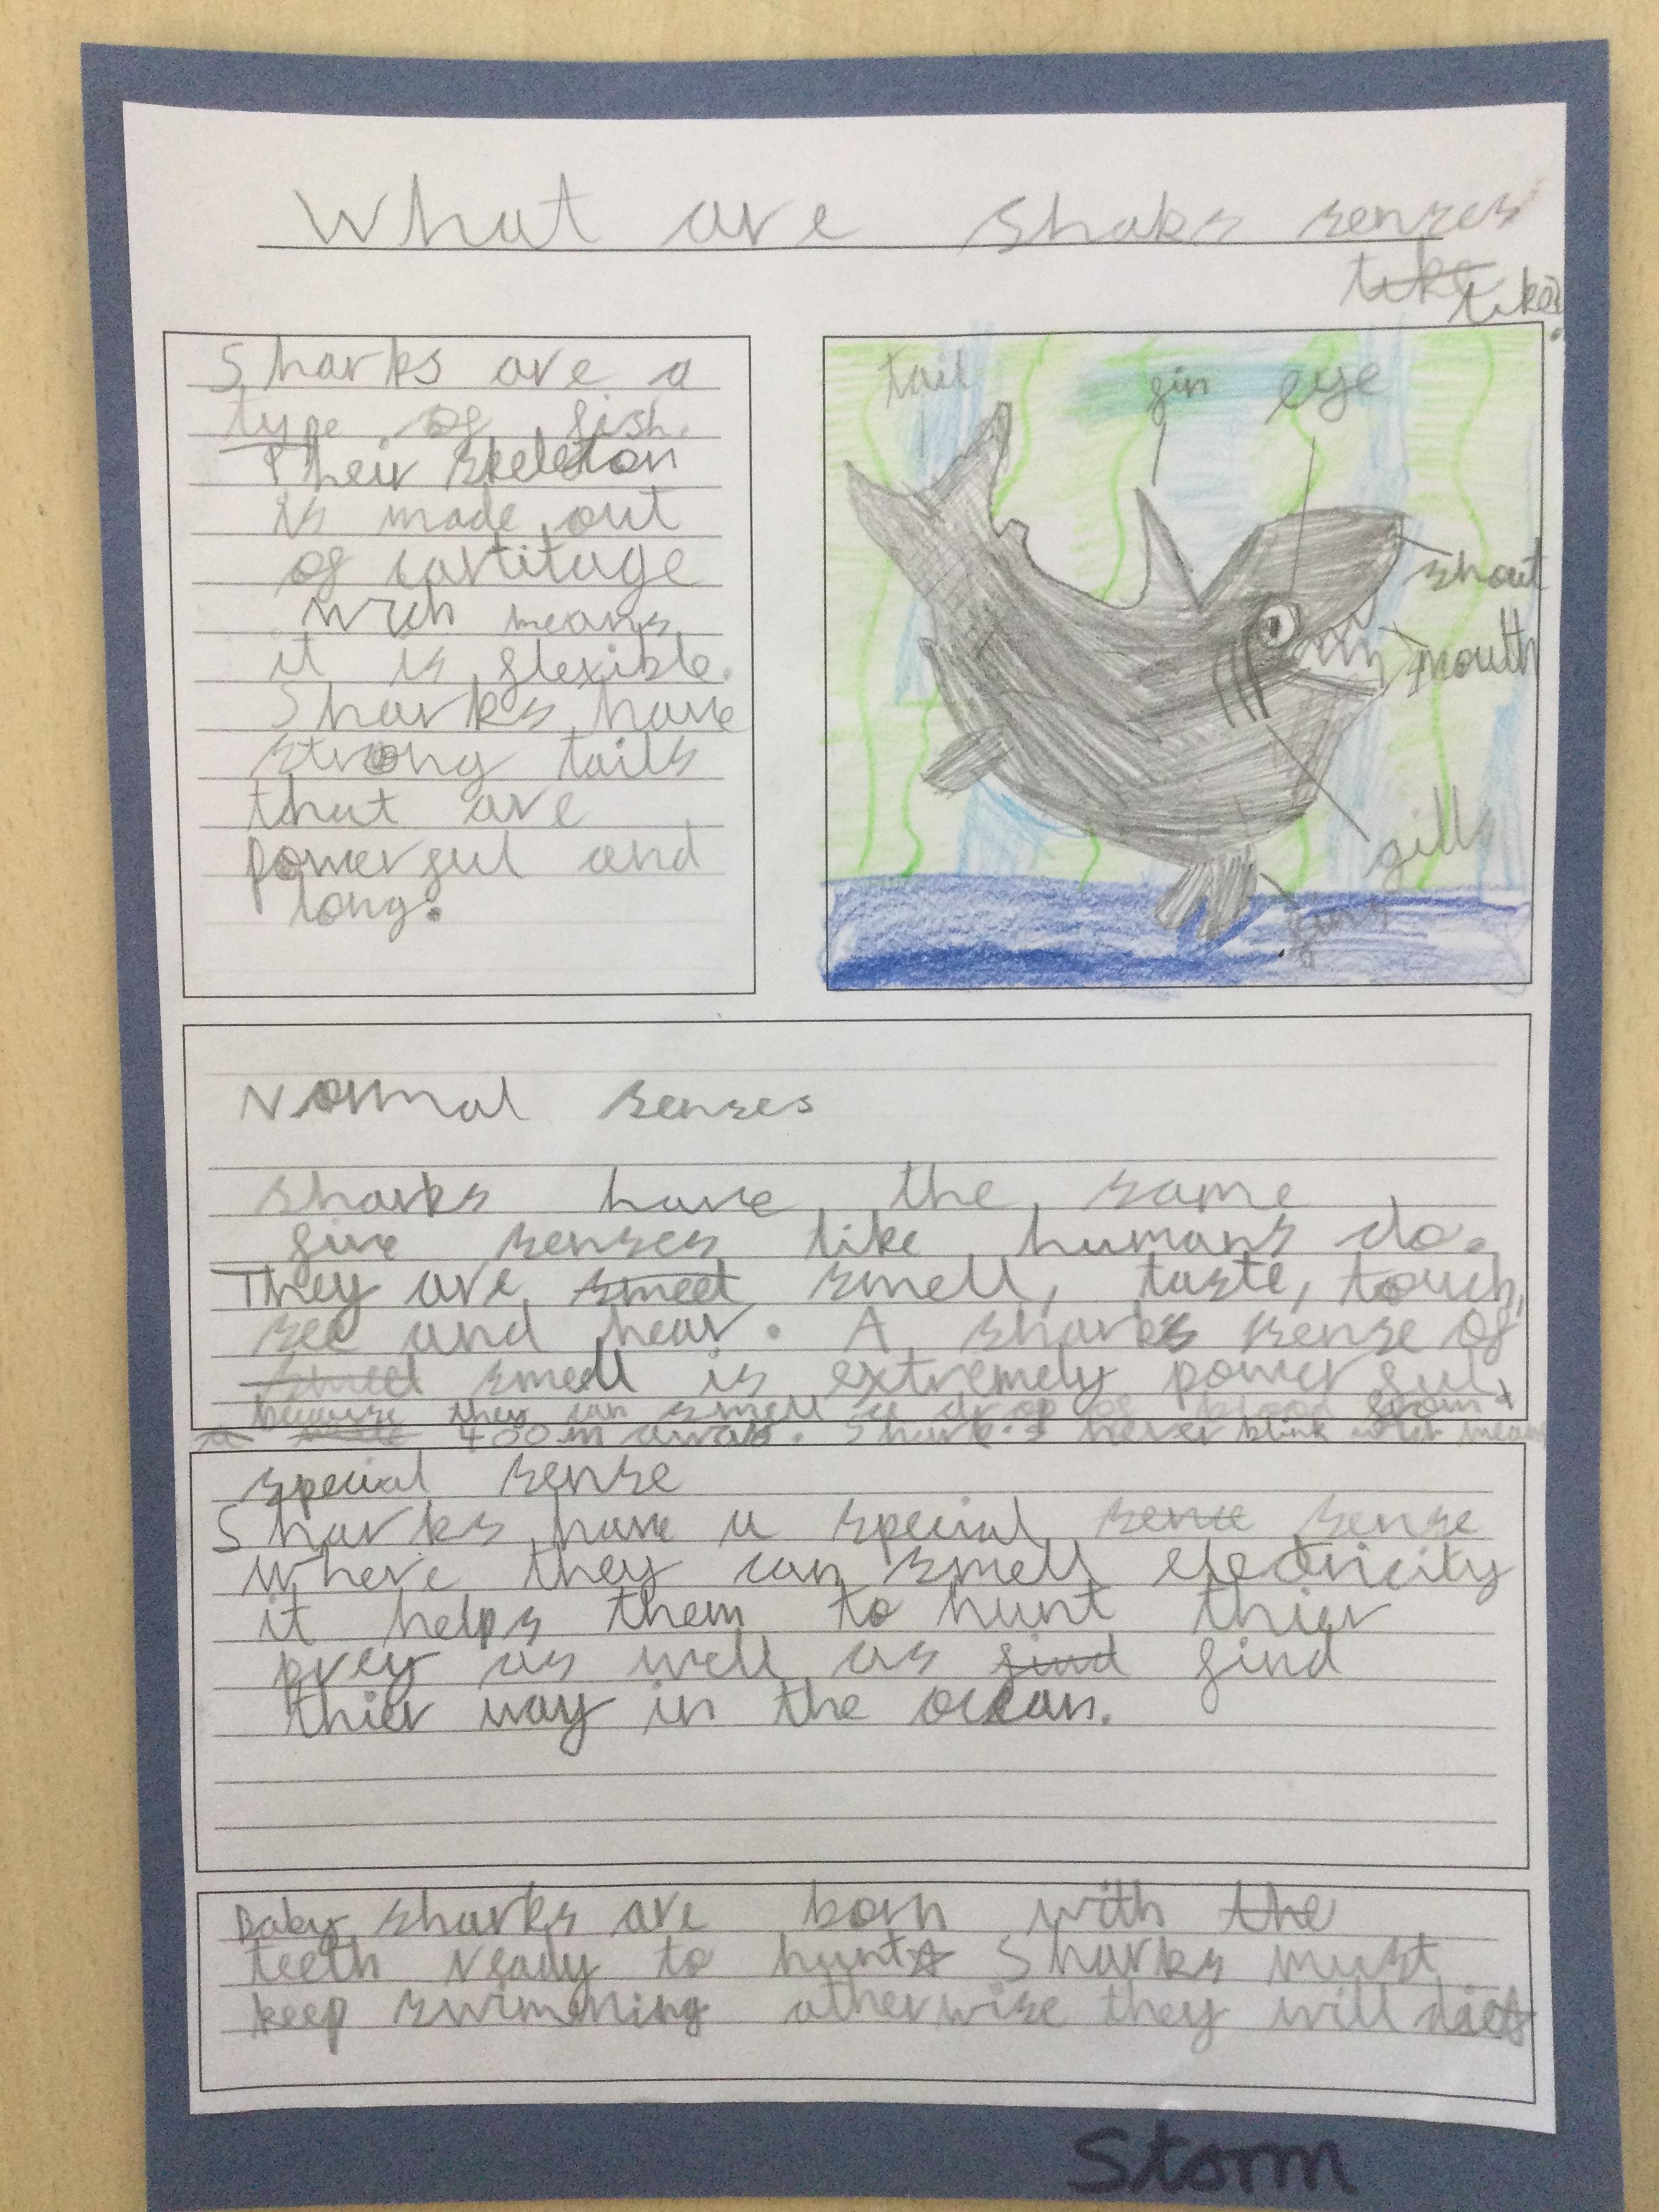 What are shaks senses
like like?
Sharks are a
type of fish.
Their skeleton
is made out
of cartilage
wich means
it is flexible.
Sharks have
strong tails
that are
powerful and
long.
tail
fin
eye
snout
mouth
gills
fins
Normal senses
sharks have the same
five senses like humans do.
They are smeel smell, taste, touch,
see and hear. A sharks sense of
smeel smell is extremely powerful
because they can smell a drop of blood from
400m away. Sharks never blink means
special sense
Sharks have a special sence sense
where they can smell electricity
it helps them to hunt thier
prey as well as find find
thier way in the ocean.
Baby sharks are born with the
teeth ready to hunt Sharks must
keep swimming otherwise they will die
Storm